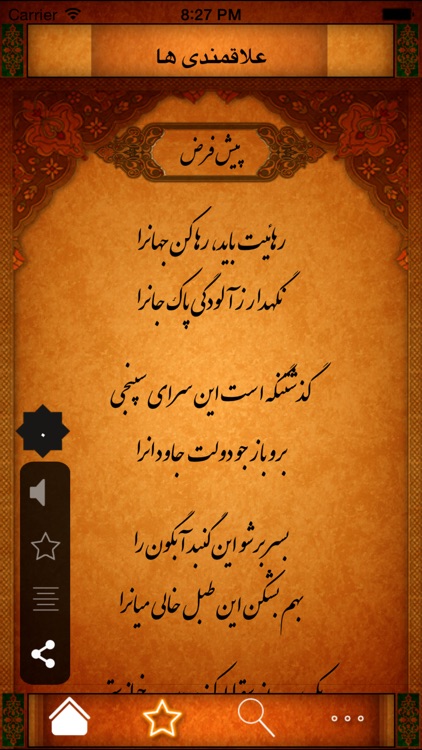 Carrier 8:27 PM
علاقمندی ها
پیش فرض
رهائیت باید، رها کن جهانرا
نگهدار ز آلودگی پاک جانرا
گذشتنگه است این سرای سپنجی
برو باز جو دولت جاودانرا
بسر بر شو این گنبد آبگون را
بهم بشکن این طبل خالی میانرا